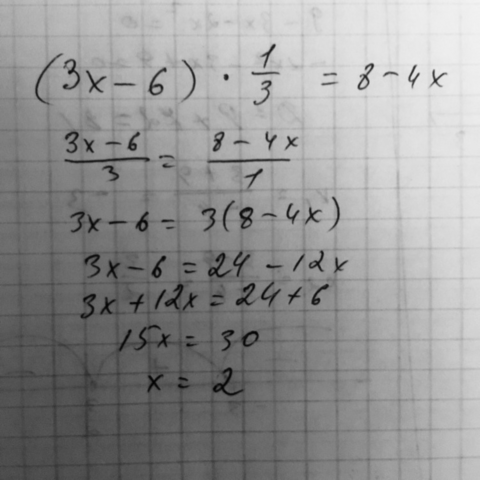 (3x - 6) · 1/3 = 8 - 4x
3x - 6/3 = 8 - 4x/1
3x - 6 = 3(8 - 4x)
3x - 6 = 24 - 12x
3x + 12x = 24 + 6
15x = 30
x = 2